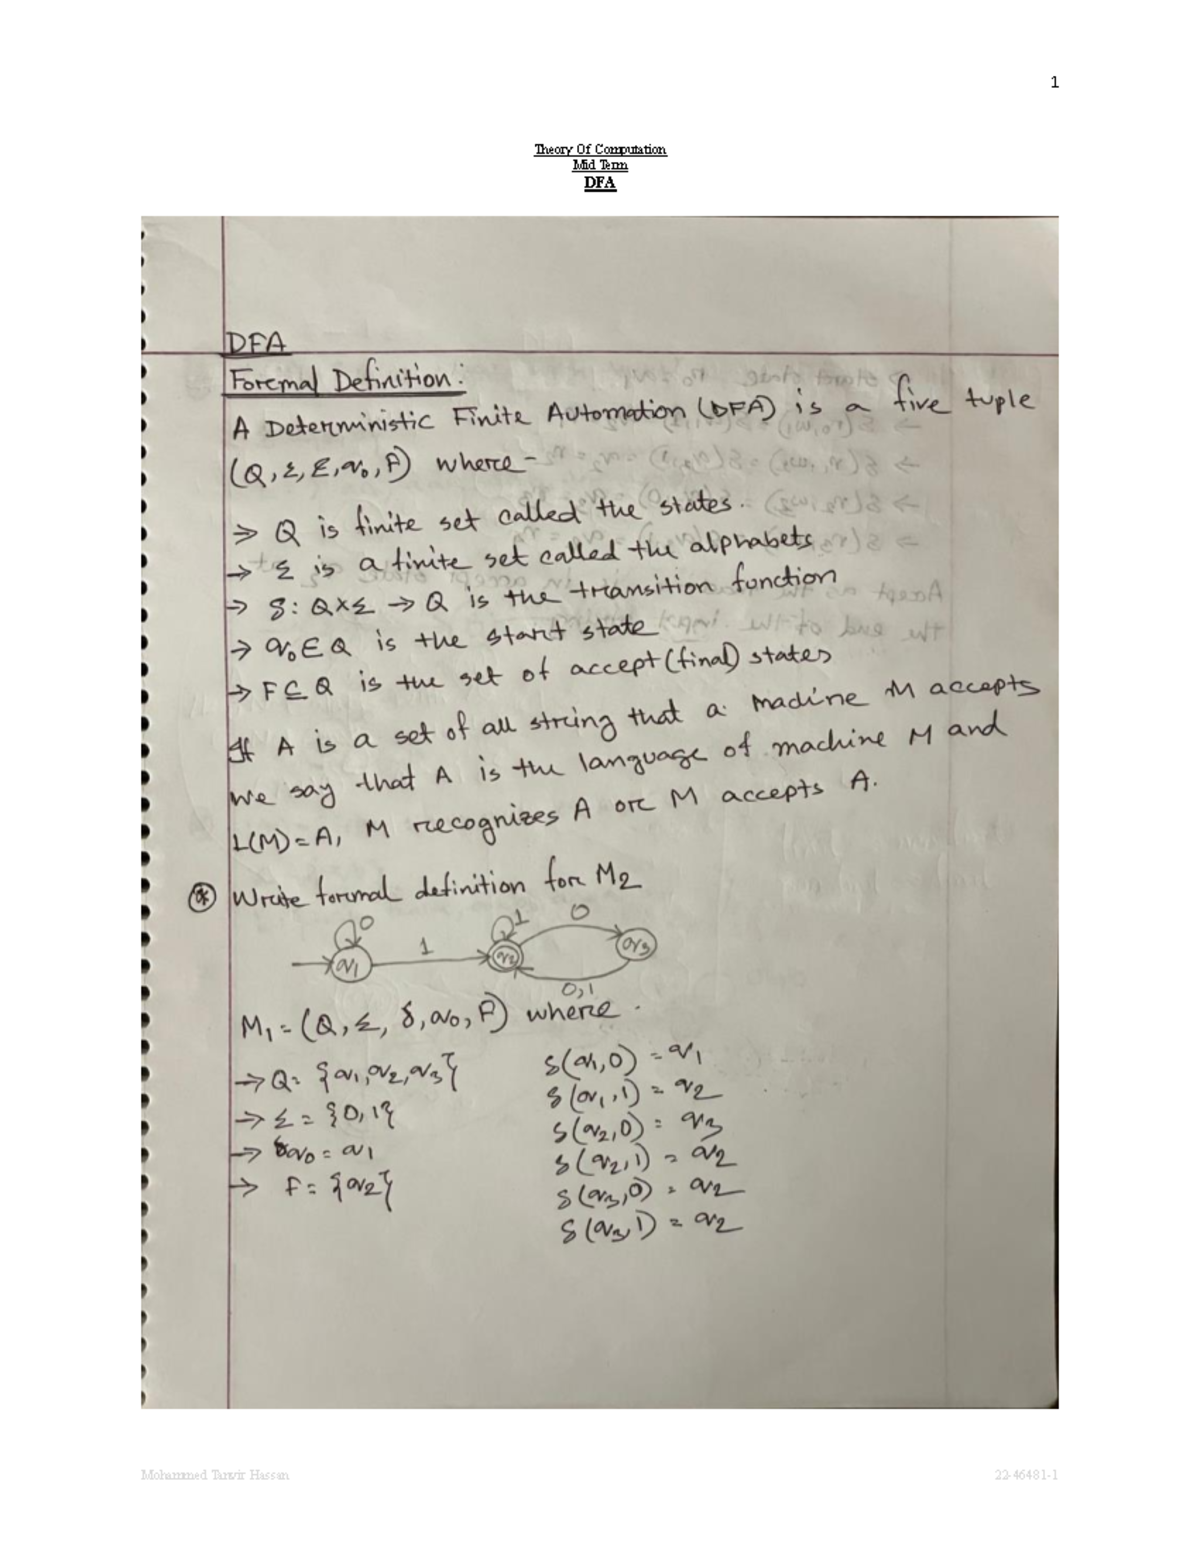 1
Theory Of Computation
Mid Term
DFA
DFA
Foremal Definition:
A Deterministic Finite Automation (DFA) is a five tuple
(Q, Σ, Σ, q0, F) where -
⇒ Q is finite set called the states.
→ Σ is a finite set called the alphabets
→ δ: Q×Σ → Q is the transition function
→ q0 ∈ Q is the start state
→ F ⊆ Q is the set of accept (final) states
If A is a set of all string that a machine M accepts
we say that A is the language of machine M and
L(M) = A, M recognizes A or M accepts A.
Write formal definition for M2
0 1 0
1
q1 q2 q3
0,1
M1 = (Q, Σ, δ, q0, F) where
→ Q = {q1, q2, q3}
→ Σ = {0, 1}
→ q0 = q1
→ F = {q2}
δ(q1, 0) = q1
δ(q1, 1) = q2
δ(q2, 0) = q3
δ(q2, 1) = q2
δ(q3, 0) = q2
δ(q3, 1) = q2
Mohammed Tanvir Hassan 22-46481-1